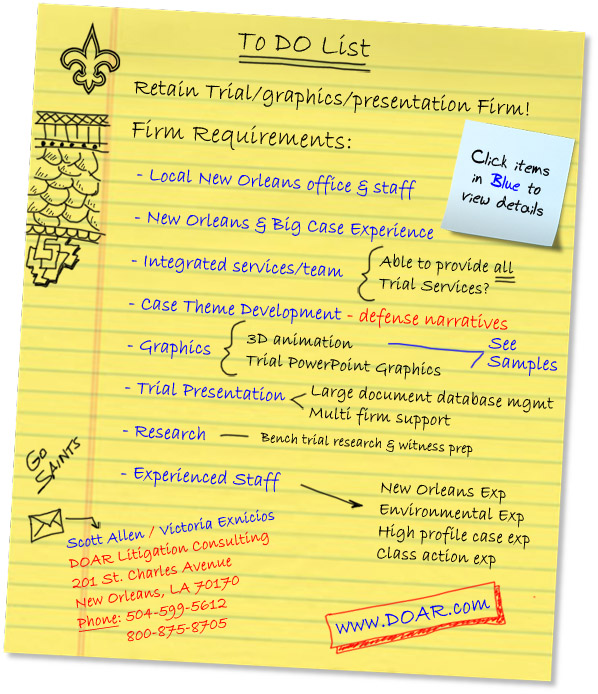 To DO List
Retain Trial/graphics/presentation Firm!
Firm Requirements:
Click items
in Blue to
view details
- Local New Orleans office & staff
- New Orleans & Big Case Experience
- Integrated services/team
Able to provide all
Trial Services?
- Case Theme Development - defense narratives
- Graphics
3D animation
Trial PowerPoint Graphics
See
Samples
- Trial Presentation
Large document database mgmt
Multi firm support
- Research — Bench trial research & witness prep
- Experienced Staff
New Orleans Exp
Environmental Exp
High profile case exp
Class action exp
GO
SAINTS
Scott Allen / Victoria Exnicios
DOAR Litigation Consulting
201 St. Charles Avenue
New Orleans, LA 70170
Phone: 504-599-5612
800-875-8705
www.DOAR.com